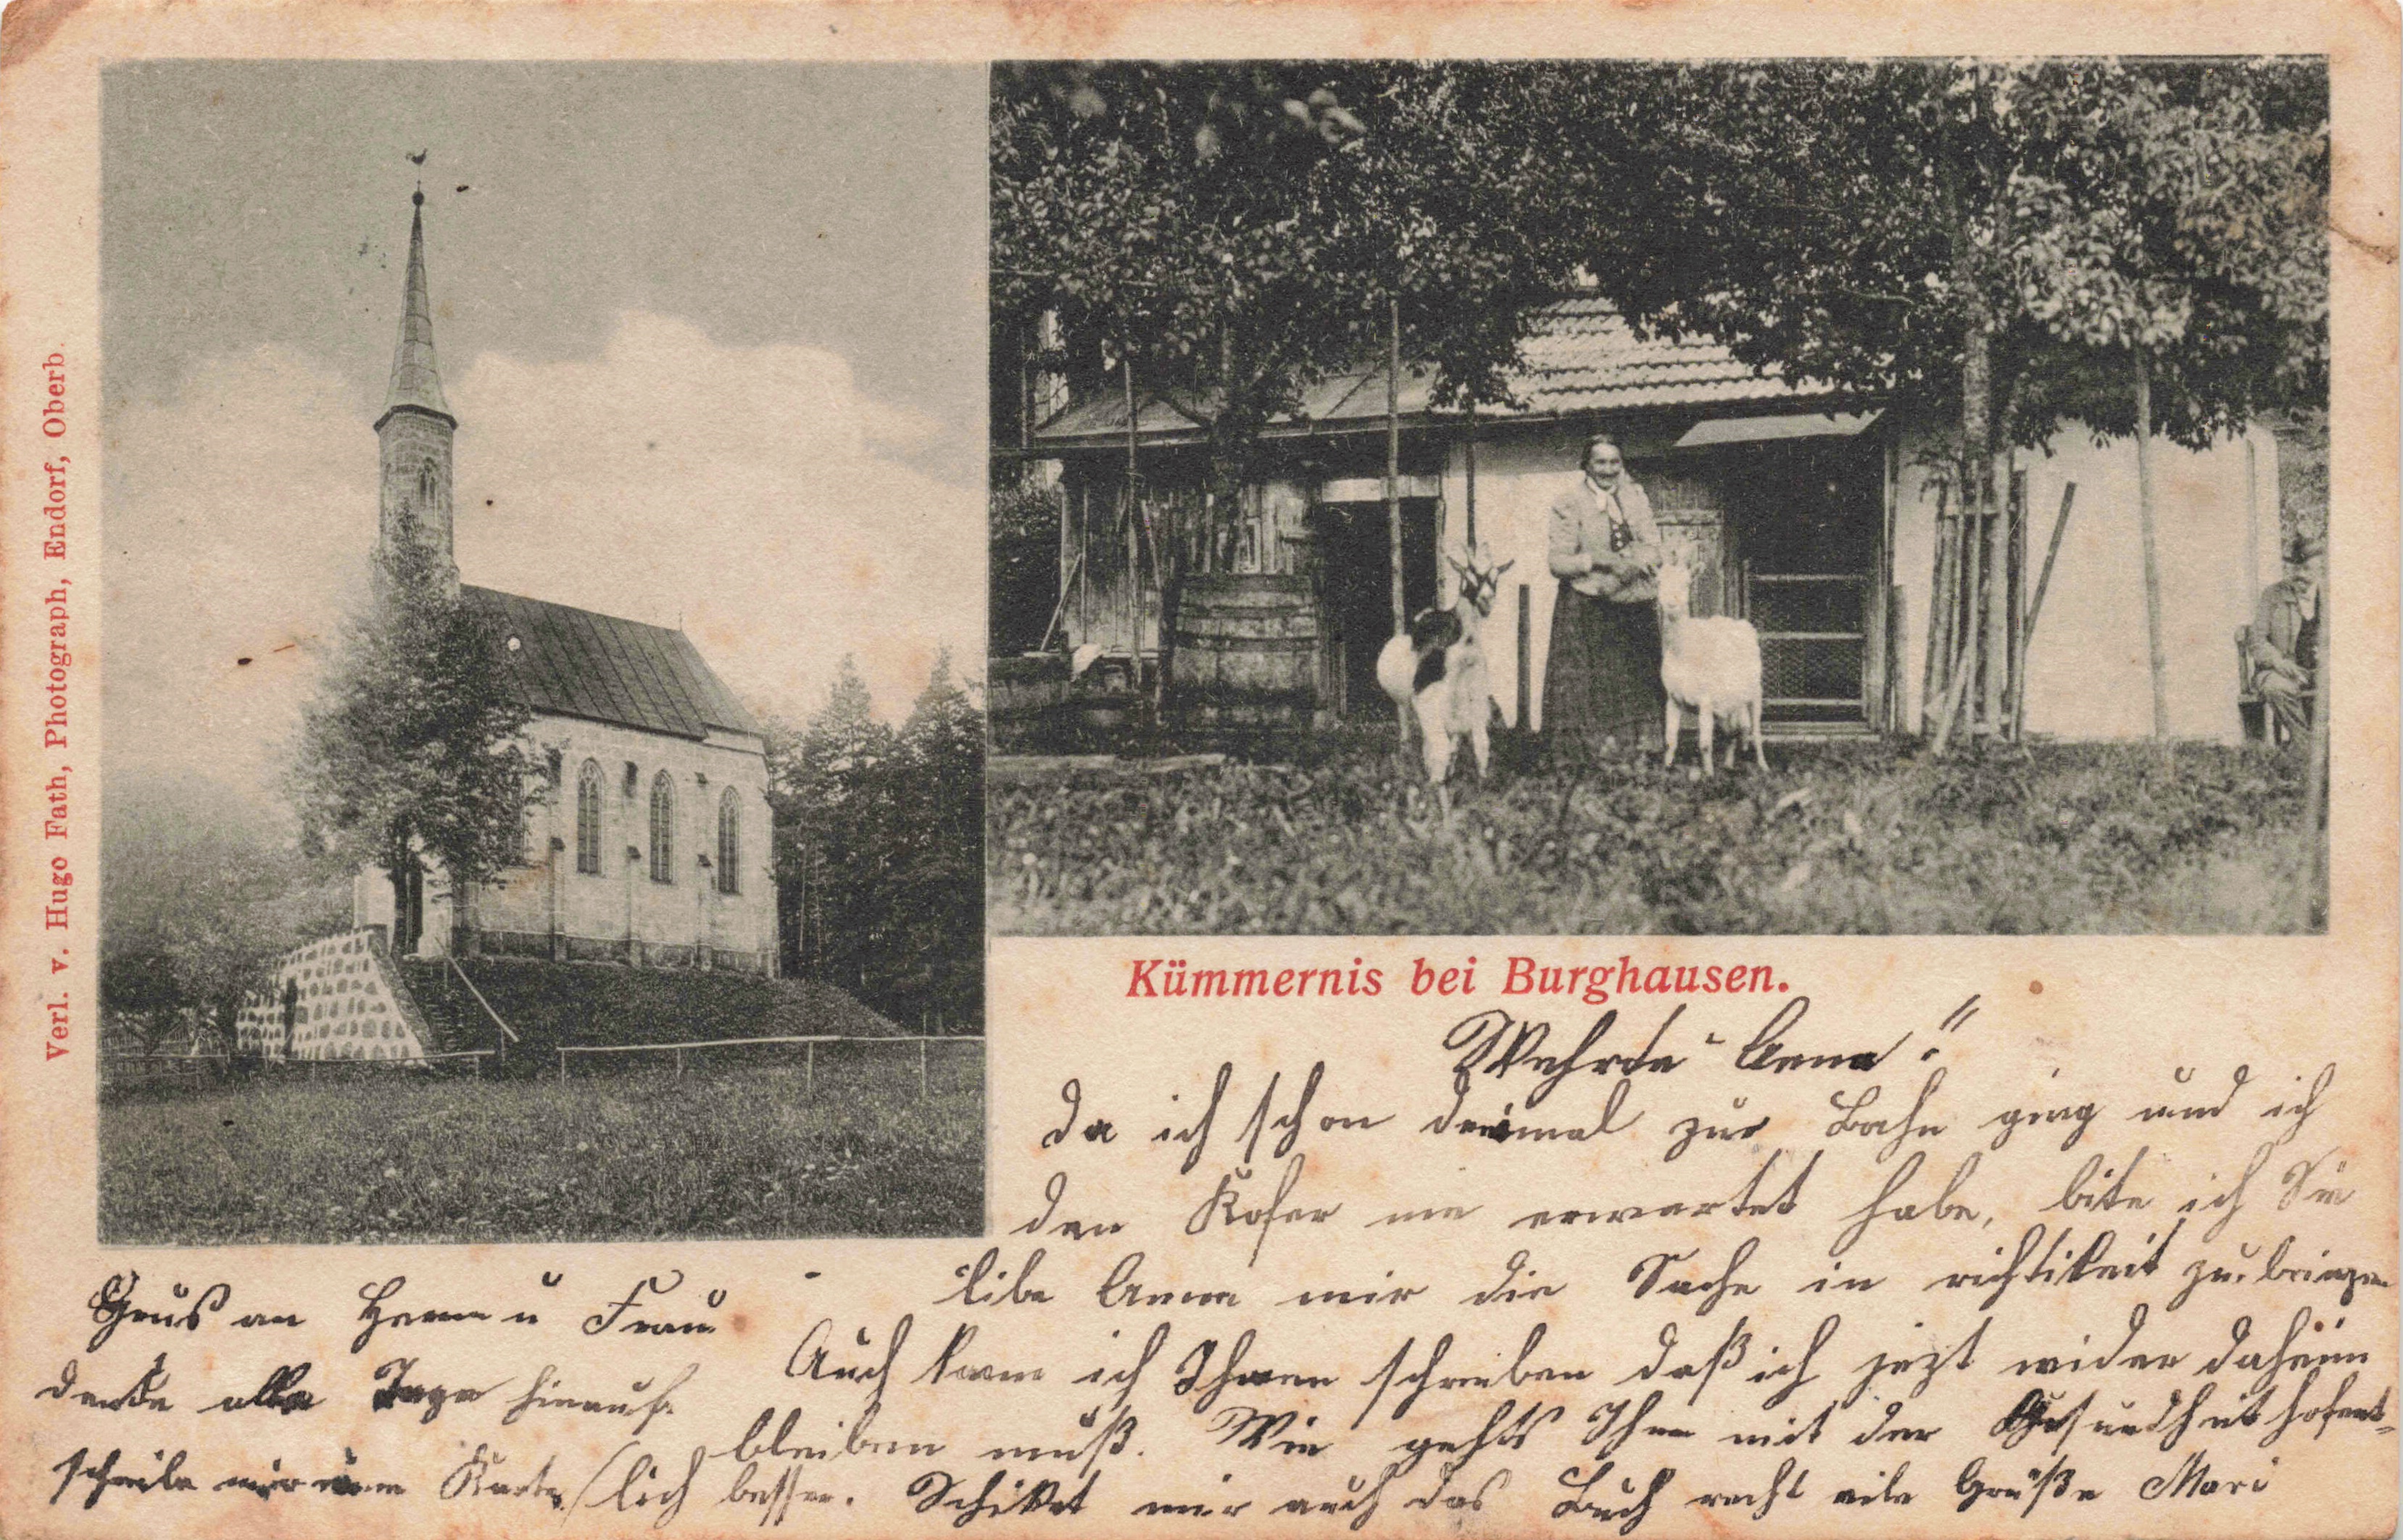 Verl. v. Hugo Fath, Photograph, Endorf, Oberb.
Kümmernis bei Burghausen.
Wehrte Anna!"
Da ich schon dreimal zur Bahn ging und ich
den Kofer nie erwartet habe, bite ich Sie
libe Anna mir die Sache in richtikeit zu bringen
Auch kann ich Ihnen schreiben daß ich jezt wider daheim
bleiben muß. Wie gehts Ihnen mit der Gesundheit hofent-
lich besser. Schikt mir auch das Buch recht vile Grüße Mari
Grus an Herrn u Frau
denke alle Tage hinauf
schreibe mir eine Karte